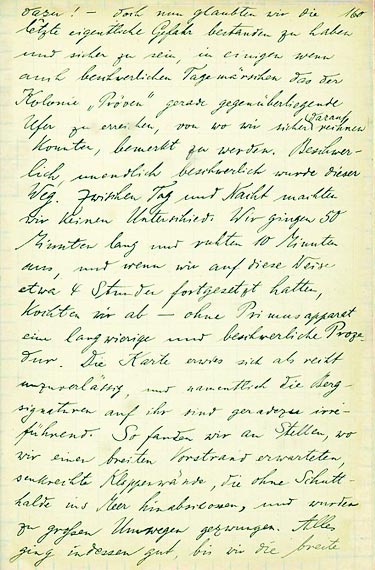 dazu! – Doch nun glaubten wir die 160
letzte eigentliche Gefahr bestanden zu haben
und sicher zu sein, in einigen wenn
auch beschwerlichen Tagemärschen das der
Kolonie „Pröven" gerade gegenüberliegende
Ufer zu erreichen, von wo wir sicher darauf rechnen
konnten, bemerkt zu werden. Beschwer-
lich, unendlich beschwerlich wurde dieser
Weg. Zwischen Tag und Nacht machten
wir keinen Unterschied. Wir gingen 50
Minuten lang und ruhten 10 Minuten
aus, und wenn wir auf diese Weise
etwa 4 Stunden fortgesetzt hatten,
kochten wir ab – ohne Primusapparat
eine langwierige und beschwerliche Proze-
dur. Die Karte erwies sich als recht
unzuverlässig, und namentlich die Berg-
signaturen auf ihr sind geradezu irre-
führend. So fanden wir an Stellen, wo
wir einen breiten Vorstrand erwarteten,
senkrechte Klippenwände, die ohne Schutt-
halde ins Meer hinabschossen, und wurden
zu großen Umwegen gezwungen. Alles
ging indessen gut, bis wir die breite